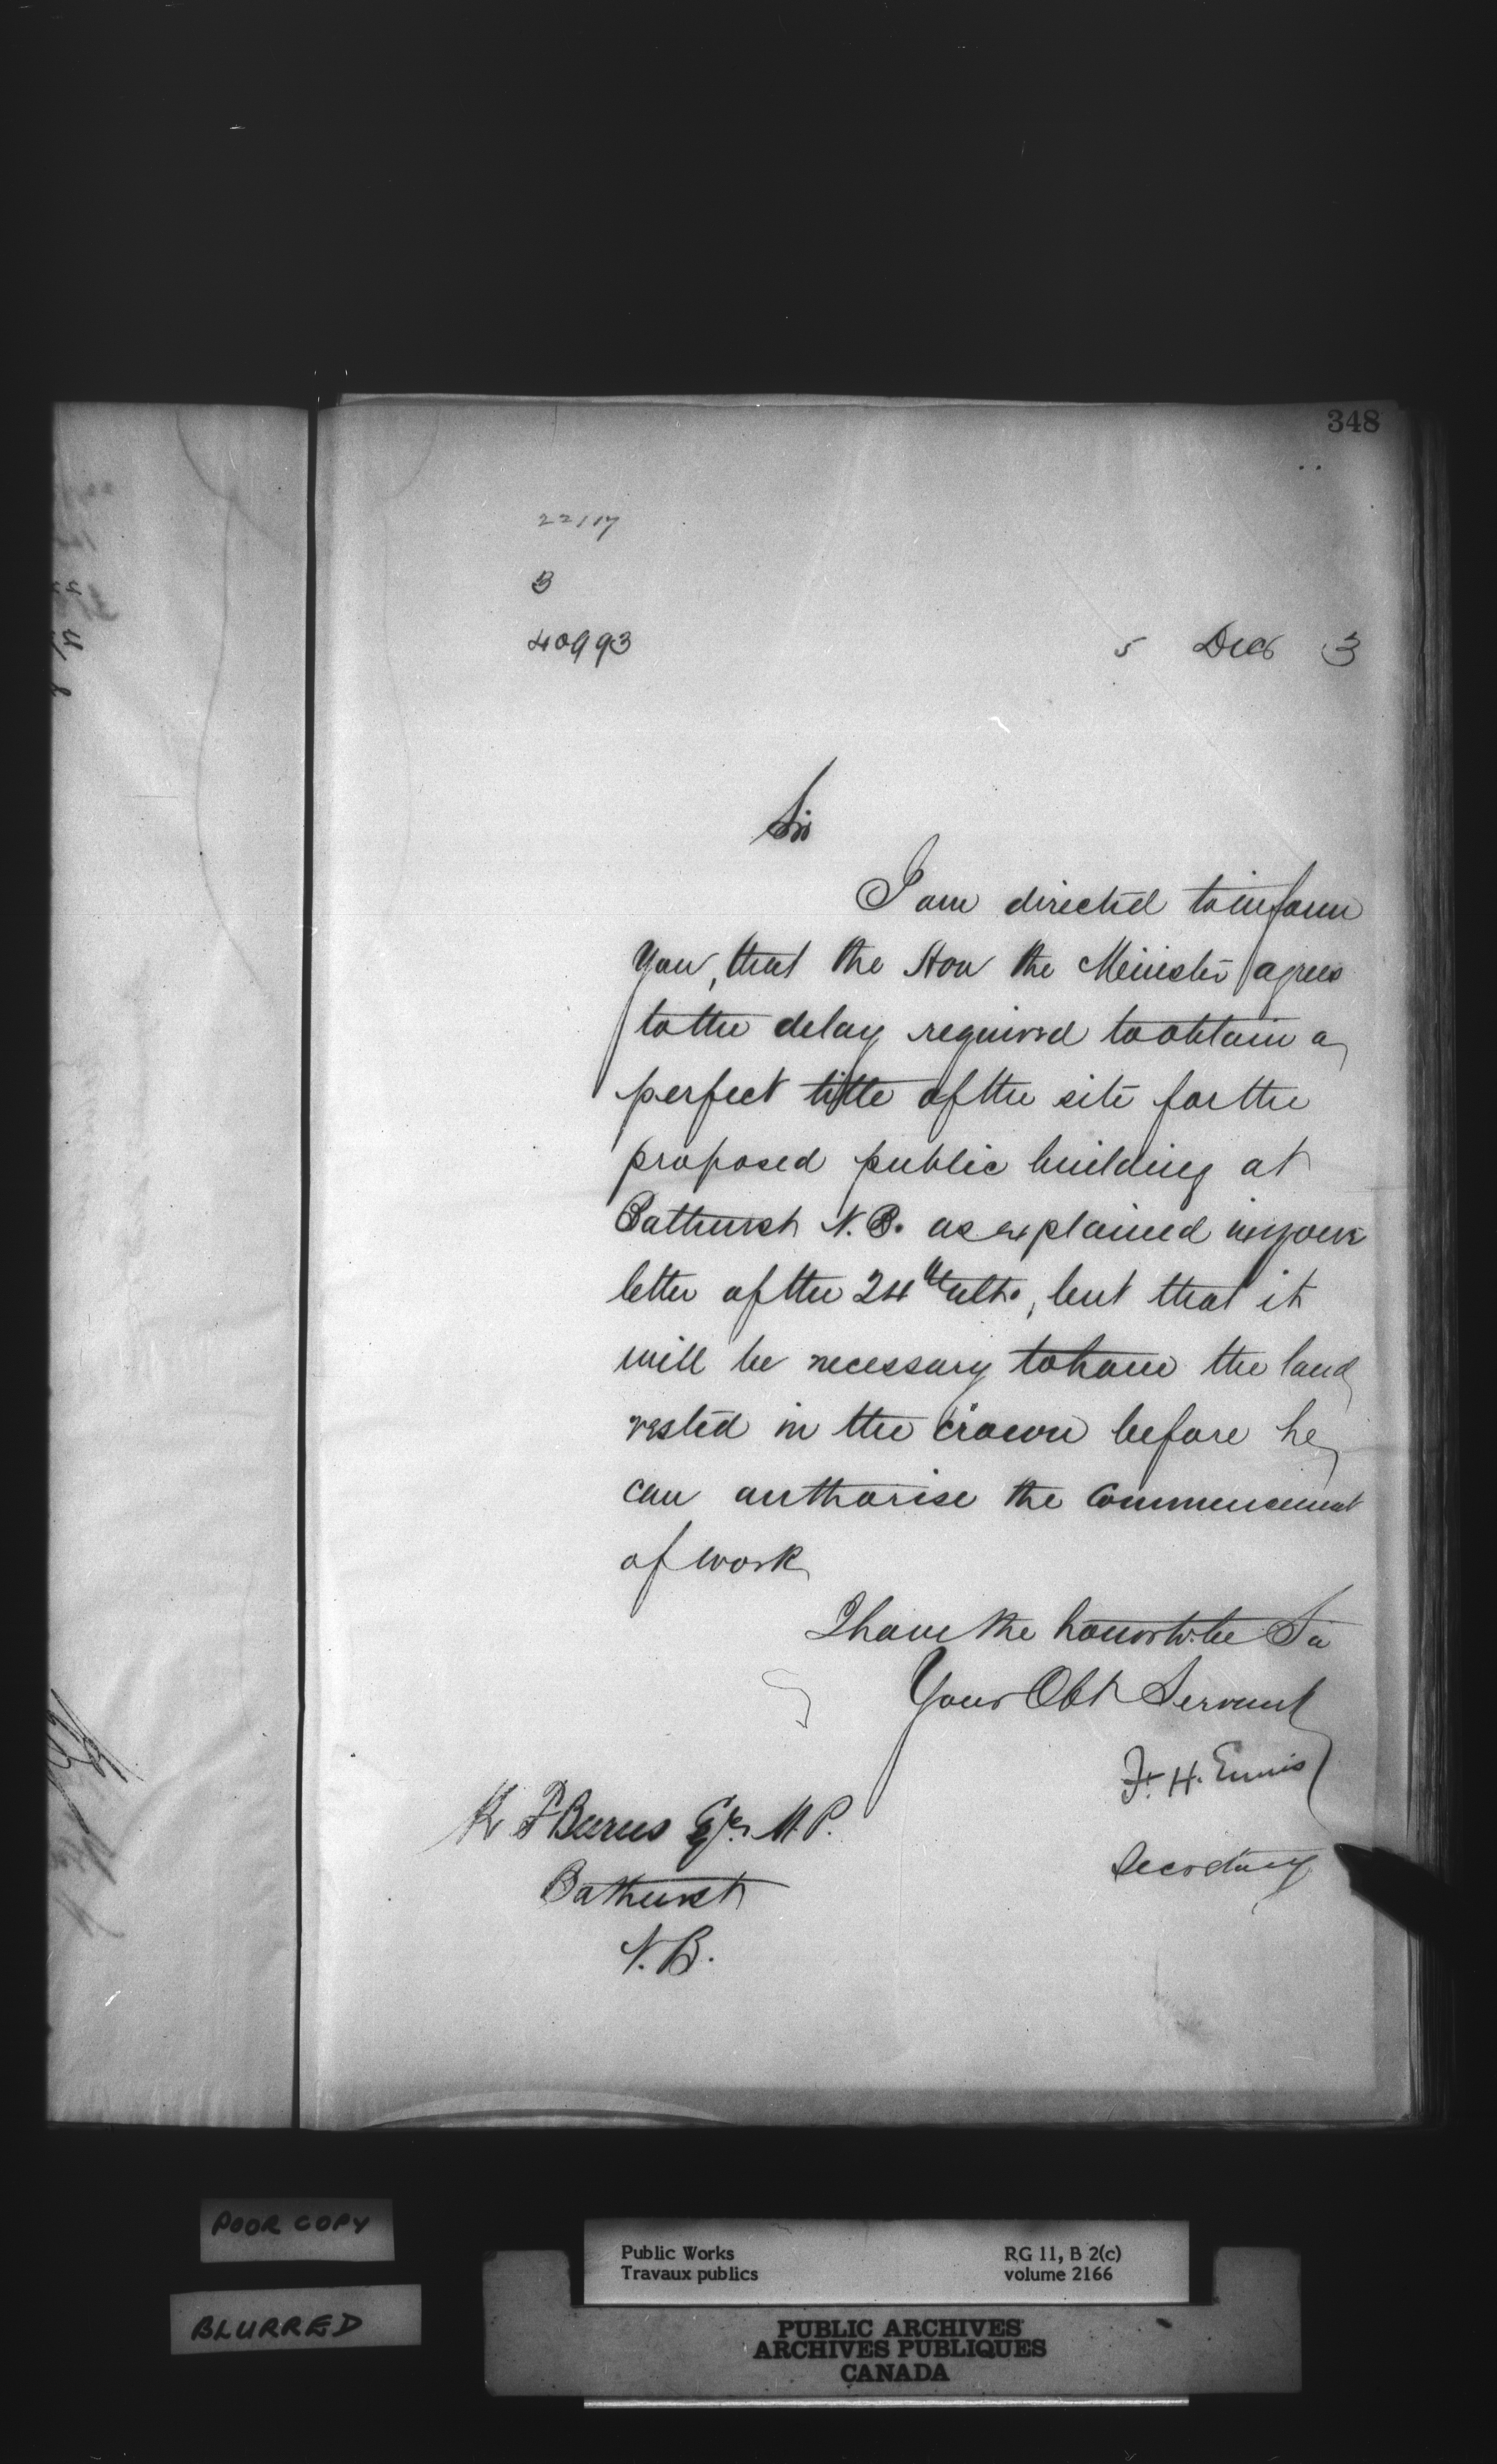 348
22117
B
40993
5 Decr 3
Sir
I am directed to inform
you, that the Hon the Minister agrees
to the delay required to obtain a
perfect title of the site for the
proposed public building at
Bathurst N.B. as explained in your
letter of the 24th ulto, but that it
will be necessary to have the land
vested in the crown before he
can authorise the Commencement
of work
I have the honor to be Sir
Your Obt Servant
F. H. Ennis
Secretary
K F Burns Esqr M.P.
Bathurst
N.B.
POOR COPY
BLURRED
Public Works
Travaux publics
RG 11, B 2(c)
volume 2166
PUBLIC ARCHIVES
ARCHIVES PUBLIQUES
CANADA